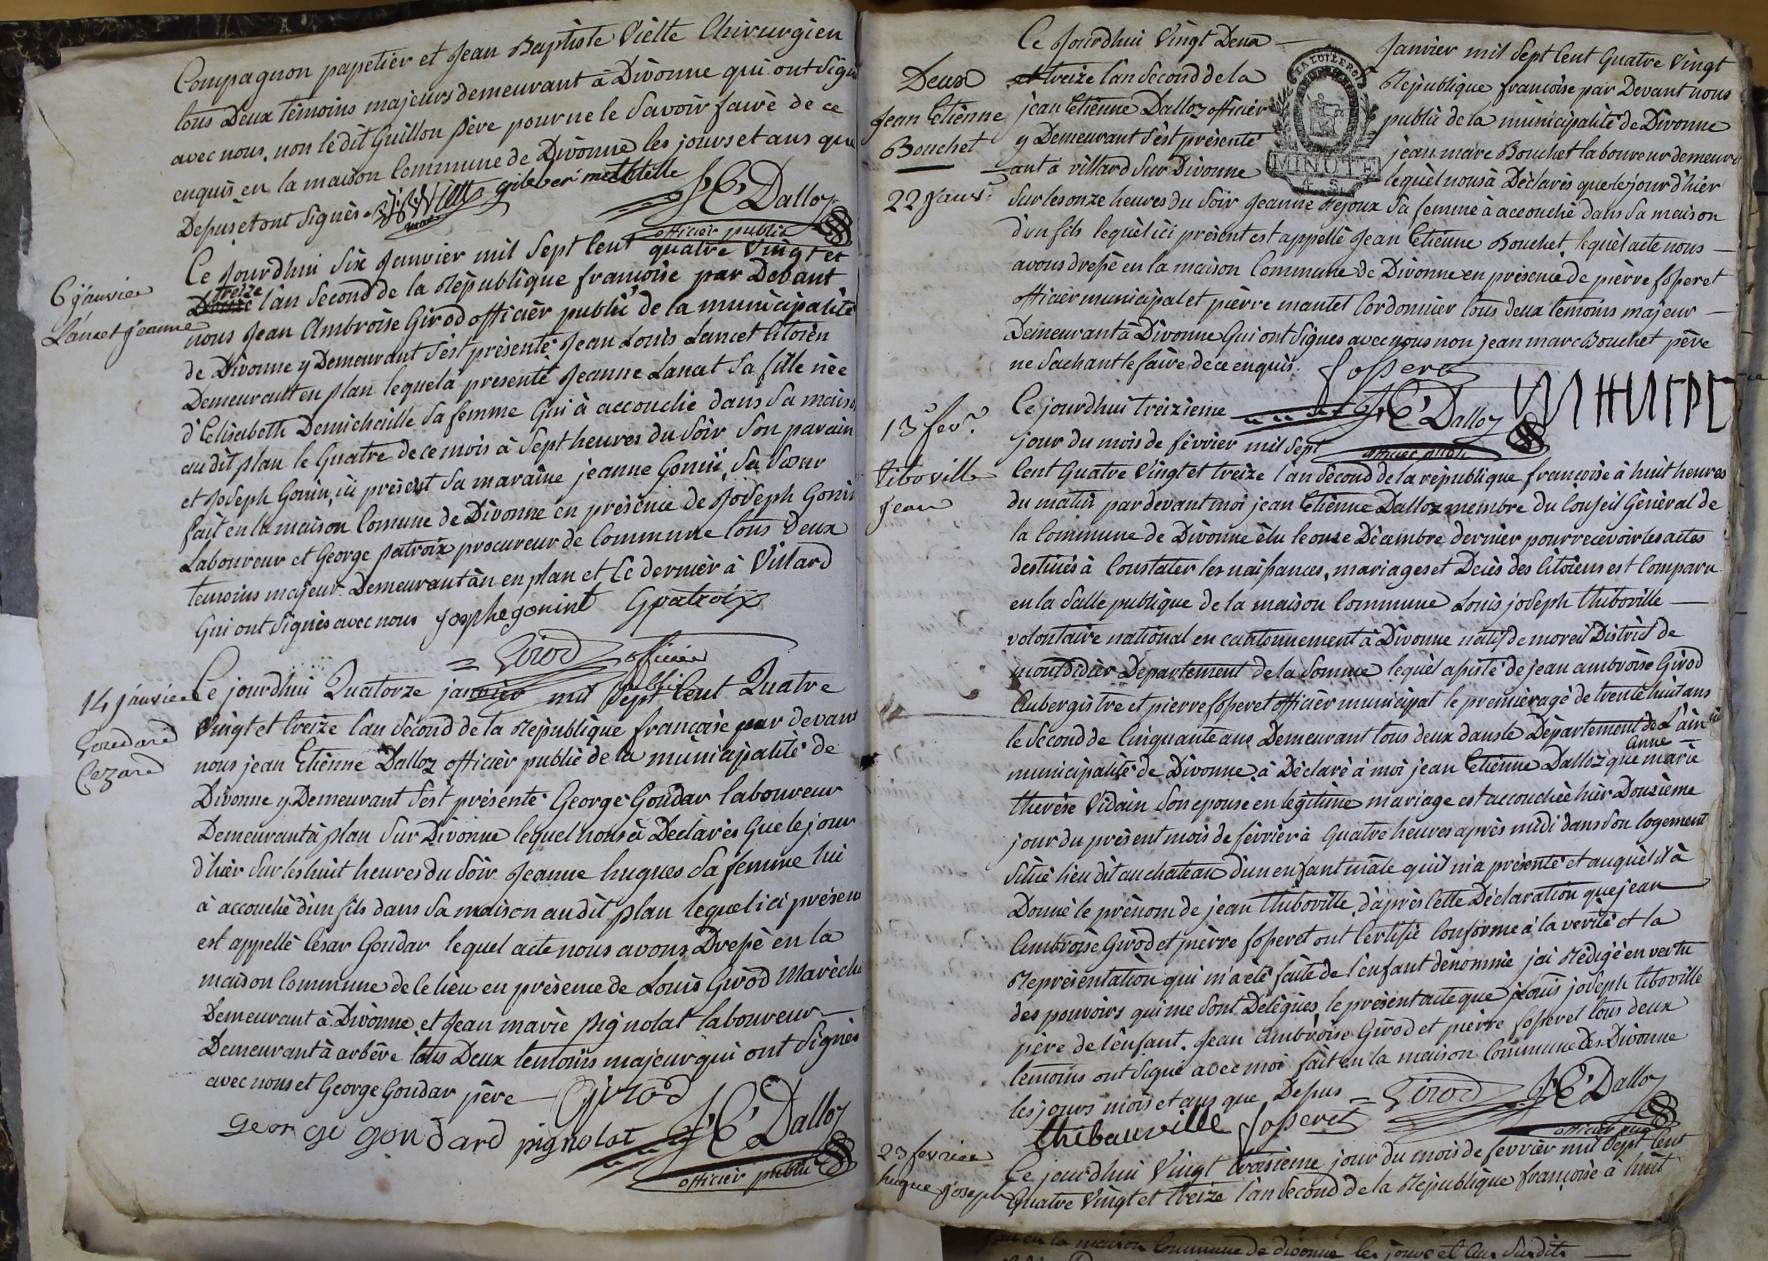 Compagnon papetier et Jean Baptiste Viette Chirurgien
tous Deux témoins majeurs demeurant à Divonne qui ont signé
avec nous, non le dit Guillon père pour ne le Savoir faire de ce
enquis, en la maison Commune de Divonne les jours et ans que
Depus et ont Signès
J C Dalloz
officier public
6 janvier
Lancet jeanne
Ce Jourdhui Six Janvier mil Sept Cent quatre Vingt et
treize l'an Second de la République françoise par Devant
nous Jean Ambroise Girod officier public de la municipalité
de Divonne y Demeurant s'est présenté Jean Louis Lancet Citoïen
Demeurant en plan lequel a presenté Jeanne Lancet Sa fille née
d'Elisabeth Demichaille Sa femme Qui à accouché dans Sa maison
audit plan le Quatre de ce mois à Sept heures du Soir Son parain
et Joseph Gonin, ici présent Sa maraine jeanne Gonin, Sa Sœur
fait en la maison Comune de Divonne en présence de Joseph Gonin
Laboureur et George patroix procureur de Commune tous deux
temoins majeur Demeurant an en plan et Le dernier à Villard
Qui ont Signès avec nous josphe gonint G patroix
Girod officier
14 janvier
Goudard
Cezard
Ce jourdhui Quatorze janvier mil Sept Cent Quatre
Vingt et treize l'an Second de la République française par devant
nous jean Etiénne Dalloz officier public de la municipalité de
Divonne y Demeurant s'est présenté George Goudar laboureur
Demeurant à plan Sur Divonne lequel nous à Déclarès Que le jour
d'hier Sur les huit heures du Soir Jeanne hugues Sa femme lui
à accouché d'un fils dans Sa maison audit plan lequel ici présent
est appellé Cesar Goudar lequel acte nous avons Drepé en la
maison Commune de ce lieu en présence de Louis Girod Maréchal
Demeurant à Divonne, et Jean marie pignolat laboureur
Demeurant à arbère tous Deux temoins majeur qui ont Signés
avec nous et George Goudar père
george gondard pignolat J C Dalloz
officier public
Deux
Jean Etienne
Bouchet
22 Janv.r
Ce Jourdhui Vingt Deux Janvier mil Sept Cent Quatre Vingt
et treize l'an Second de la République françoise par Devant nous
jean Etiénne Dalloz officier public de la municipalité de Divonne
y Demeurant S'est présenté jean marc Bouchet laboureur demeur
ant à Villard Sur Divonne lequel nous à Déclarès que le jour d'hier
LA LOI LE ROI
MINUTE
4. S.
Sur les onze heures du Soir Jeanne Rejoux Sa femme à accouché dans Sa maison
d'un fils lequel ici présent est appellé Jean Etiénne Bouchet, lequel acte nous
avons drepé en la maison Commune de Divonne en présence de pièrre fosseret
officier municipal et pièrre mantet Cordonnier tous deux temoins majeur
Demeurant à Divonne Qui ont Signes avec nous non jean marc Bouchet père
ne Sachant le faire de ce enquis. fosseret
J C Dalloz
officier public
13 fev.r
tiboville
jean
Ce jourdhui treizieme
jour du mois de février mil Sept
Cent Quatre Vingt et treize l'an Second de la république françoise à huit heures
du matin par devant moi jean Etiénne Dalloz membre du Conseil Général de
la Commune de Divonne élu le onze Décembre dernier pour recevoir les actes
destinés à Constater les naissances, mariages et Décès des Citoïens est Comparu
en la Salle publique de la maison Commune Louis joseph thiboville
volontaire national en cantonnement à Divonne natif de moreil District de
montdidier Departement de la Somme lequel apisté de jean ambroise Girod
Aubergistre et pierre fosseret officier municipal le premier agé de trente huit ans
le Second de Cinquante ans Demeurant tous deux dans le Département de L'ain
municipalité de Divonne, à Déclaré à moi jean Etiénne Dalloz que anne marie
therèse Vidain Son epouse en légitime mariage est accouchée hier Douzième
jour du présent mois de février à Quatre heures après midi dans Son logement
Situé lieu dit au chateau d'un enfant mâle qu'il m'a présenté et auquel il à
Donné le prénom de jean thiboville, d'après Cette Déclaration que jean
Ambroise Girod et pièrre fosseret ont Certifié Conforme à la verité et la
Représentation qui m'a été faite de l'enfant denommé j'ai Rédigé en vertu
des pouvoirs qui me Sont Délégues, le présent acte que Louis joseph tiboville
pere de l'énfant, jean ambroise Girod et pierre fosseret tous deux
temoins ont Signé avec moi fait en la maison Commune de Divonne
les jours mois et ans que Depus Girod J C Dalloz
thibauville fosseret officier public
23 fevrier
hugue joseph
Ce jourdhui Vingt troisième jour du mois de fevrier mil Sept Cent
Quatre Vingt et treize l'an Second de la République françoise à huit
en la maison Commune de divonne les jours et ans Susdits